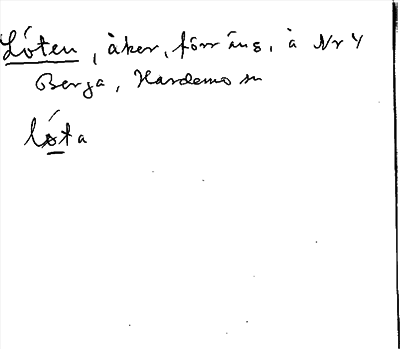 Lóten, åker, förr äng, å Nr 4
Berga, Hardemo sn
lóta